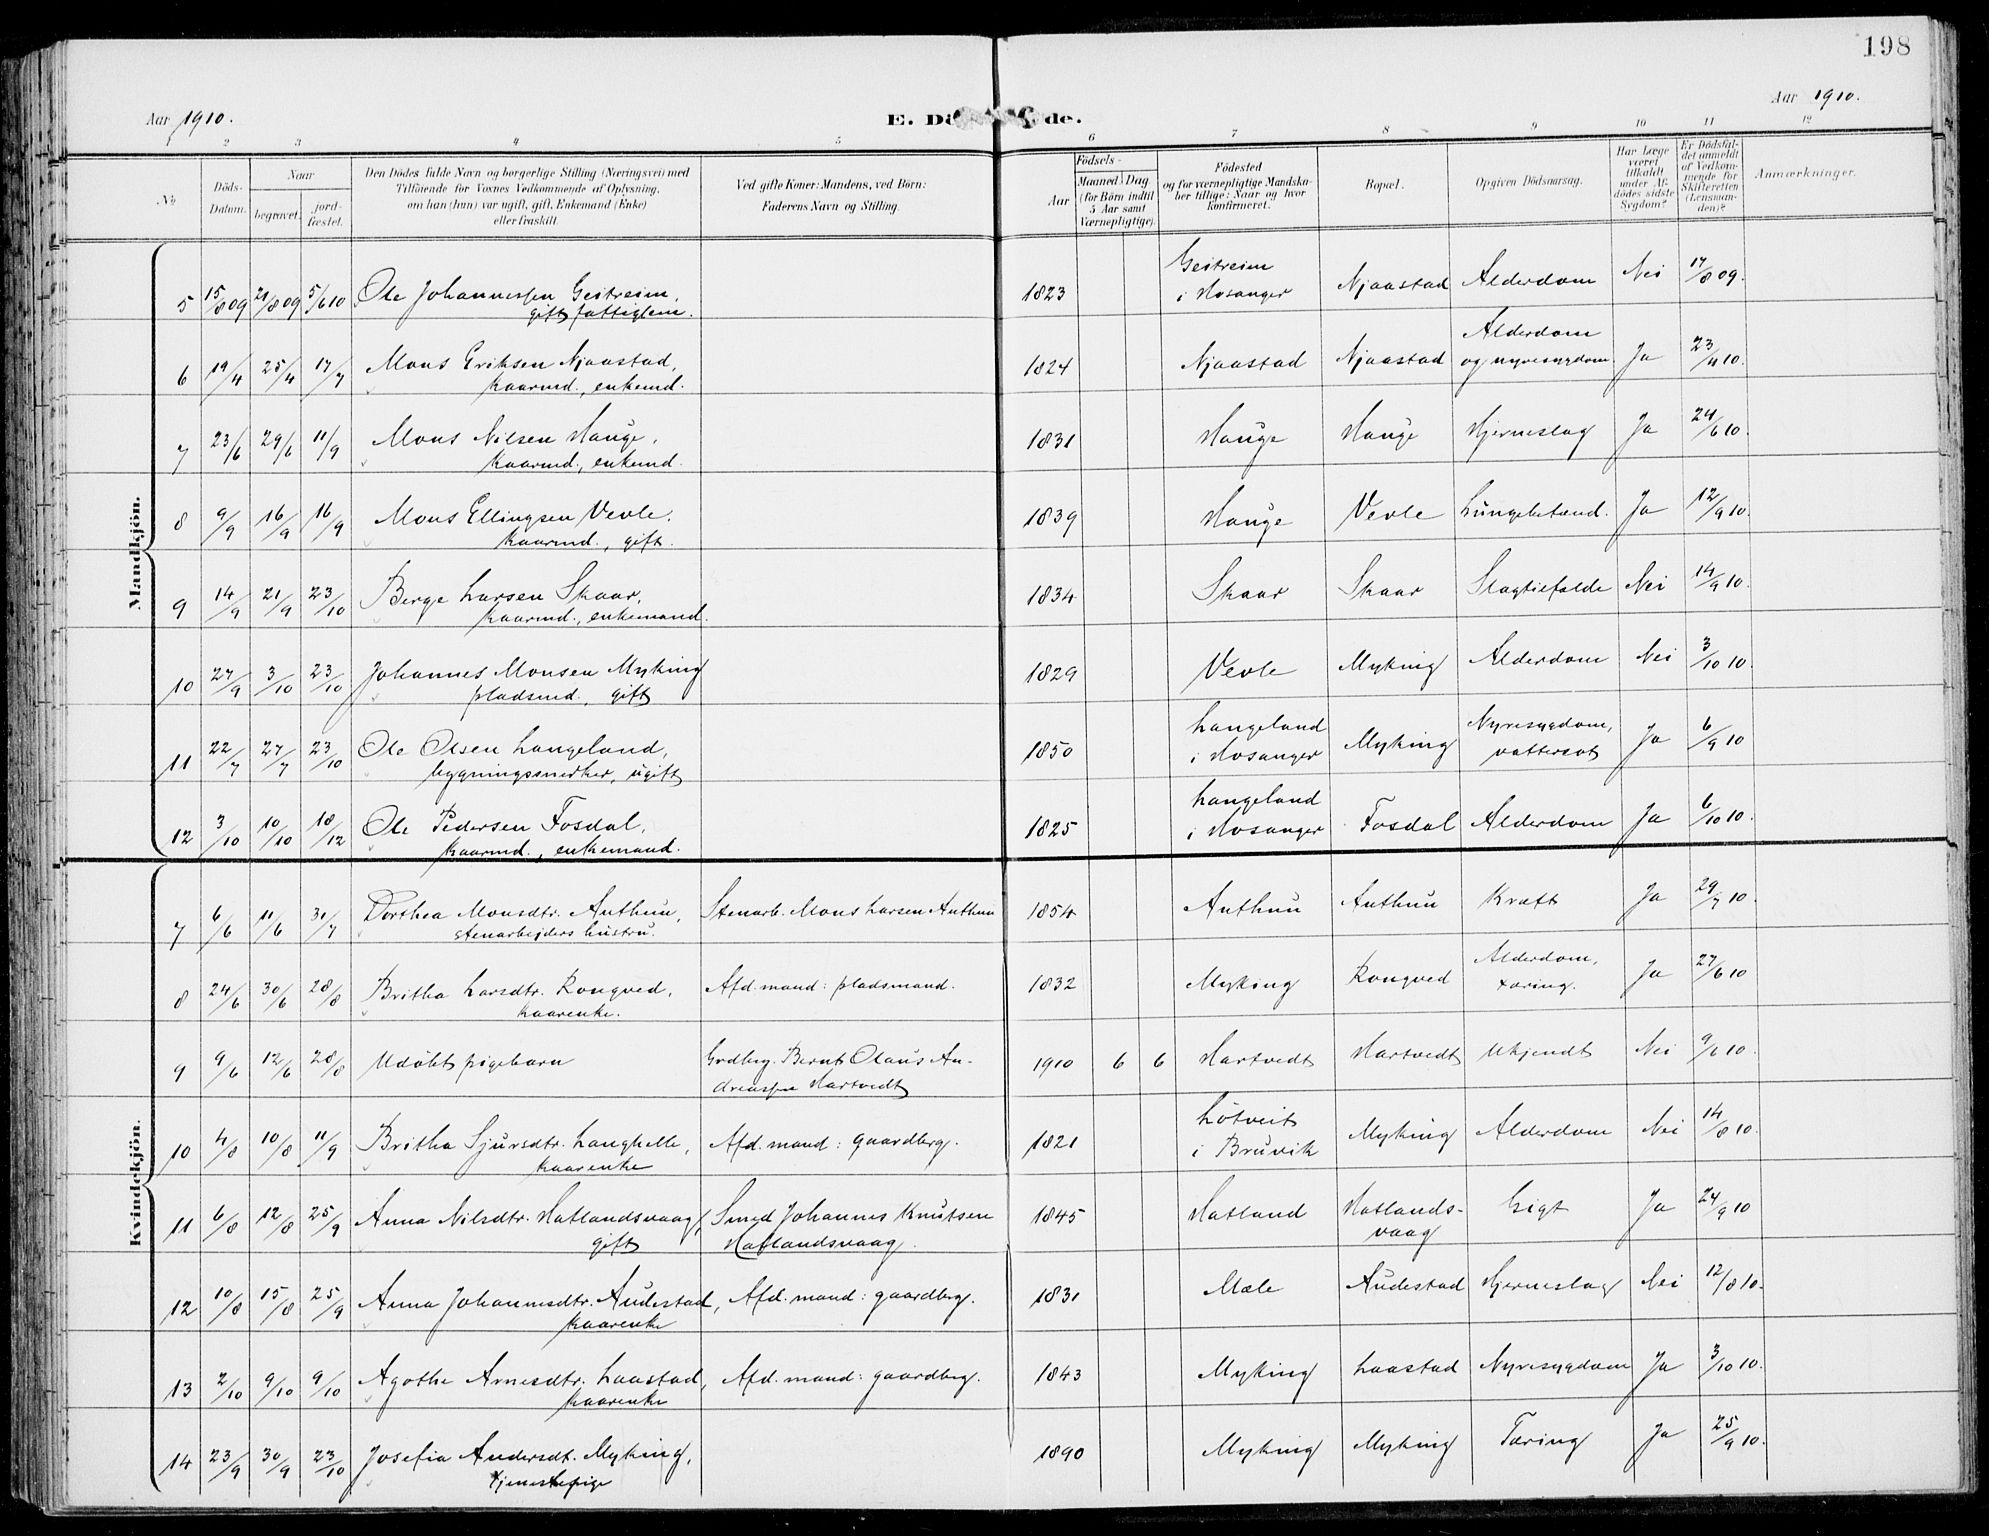 198
Aar 1910.
E. Dö de.
Aar 1910.
1 2 3 4 5 6 7 8 9 10 11 12
No
Döds-
Datum.
Naar
begravet.
jord-
fæstet.
Den Dödes fulde Navn og borgerlige Stilling (Næringsvei) med
Tilföiende for Voxnes Vedkommende af Oplysning,
om han (hun) var ugift, gift, Enkemand (Enke)
eller fraskilt.
Ved gifte Koner: Mandens, ved Börn:
Faderens Navn og Stilling.
Aar
Födsels-
Maaned Dag
(for Börn indtil
5 Aar samt
Værnepligtige).
Födested
og for værnepligtige Mandska-
ber tillige: Naar og hvor
konfirmeret.
Bopæl.
Opgiven Dödsaarsag.
Har Læge
været
tilkaldt
under Af-
dödes sidste
Sygdom?
Er Dödsfal-
det anmeldt
af Vedkom-
mende for
Skifteretten
(Lensman-
den)?
Anmærkninger.
Mandkjön.
5 15/8 09 21/8 09 5/6 10 Ole Johannessen Geitreim, 1823 Geitreim i Hosanger Njaastad Alderdom Nei 17/8 09.
gift fattiglem.
6 19/4 25/4 17/7 Mons Eriksen Njaastad, 1824 Njaastad Njaastad Alderdom og nyresygdom Ja 23/4 10.
kaarmd., enkemd.
7 23/6 29/6 11/9 Mons Nilsen Hauge, 1831 Hauge Hauge Hjerneslag Ja 24/6 10.
kaarmd., enkemd.
8 9/9 16/9 16/9 Mons Ellingsen Vevle, 1839 Hauge Vevle Lungebetænd. Ja 12/9 10.
kaarmd., gift.
9 14/9 21/9 23/10 Berge Larsen Skaar, 1834 Skaar Skaar Slagtilfælde Nei 14/9 10.
kaarmd., enkemand.
10 27/9 3/10 23/10 Johannes Monsen Myking 1829 Vevle Myking Alderdom Nei 3/10 10.
pladsmd., gift
11 22/7 27/7 23/10 Ole Olsen Langeland, 1850 Langeland i Hosanger Myking Nyresygdom, vattersot Ja 6/9 10
bygningssnerker, ugift
12 3/10 10/10 18/12 Ole Pedersen Fosdal, 1825 Langeland i Hosanger Fosdal Alderdom Ja 6/10 10.
kaarmd., enkemand.
Kvindekjön.
7 6/6 11/6 31/7 Dorthea Monsdtr. Anthun, Stenarb. Mons Larsen Anthun 1854 Anthun Anthun Kræft Ja 29/7 10.
stenarbejders hustru.
8 24/6 30/6 28/8 Britha Larsdtr. Rongved, Afd. mand: pladsmand. 1832 Myking Rongved Alderdom, tæring. Ja 27/6 10
kaarenke.
9 9/6 12/6 28/8 Udöbt pigebarn Grdbrg. Bernt Olaus An- 1910 6 6 Hartvedt Hartvedt Ukjendt Nei 9/6 10.
dreassen Hartvedt
10 4/8 10/8 11/9 Britha Sjursdtr. Langhelle, Afd. mand: gaardbrg. 1821 Lötveit i Bruvik Myking Alderdom Nei 14/8 10.
kaarenke
11 6/8 12/8 25/9 Anna Nilsdtr. Hatlandsvaag, Smed Johannes Knutsen 1845 Hatland Hatlands-vaag Gigt Ja 24/9 10
gift Hatlandsvaag.
12 10/8 15/8 25/9 Anna Johannesdtr. Audestad, Afd. mand: gaardbrg. 1831 Mæle Audestad Hjerneslag Nei 12/8 10.
kaarenke
13 2/10 9/10 9/10 Agathe Arnesdtr. Laastad, Afd. mand: gaardbrg. 1843 Myking Laastad Nyresygdom Ja 3/10 10.
kaarenke
14 23/9 30/9 23/10 Josefia Andersdt. Myking, 1890 Myking Myking Tæring Ja 25/9 10.
tjenestepige